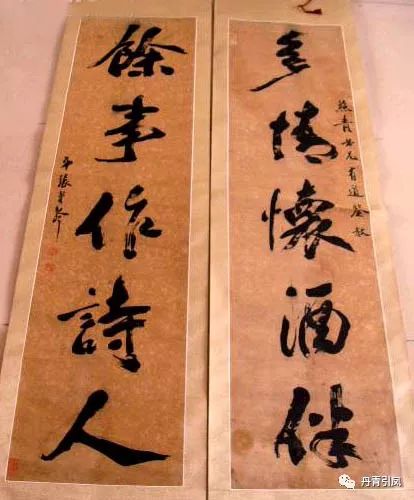 多情懷酒伴
有道
餘事作詩人
張
丹青引凤